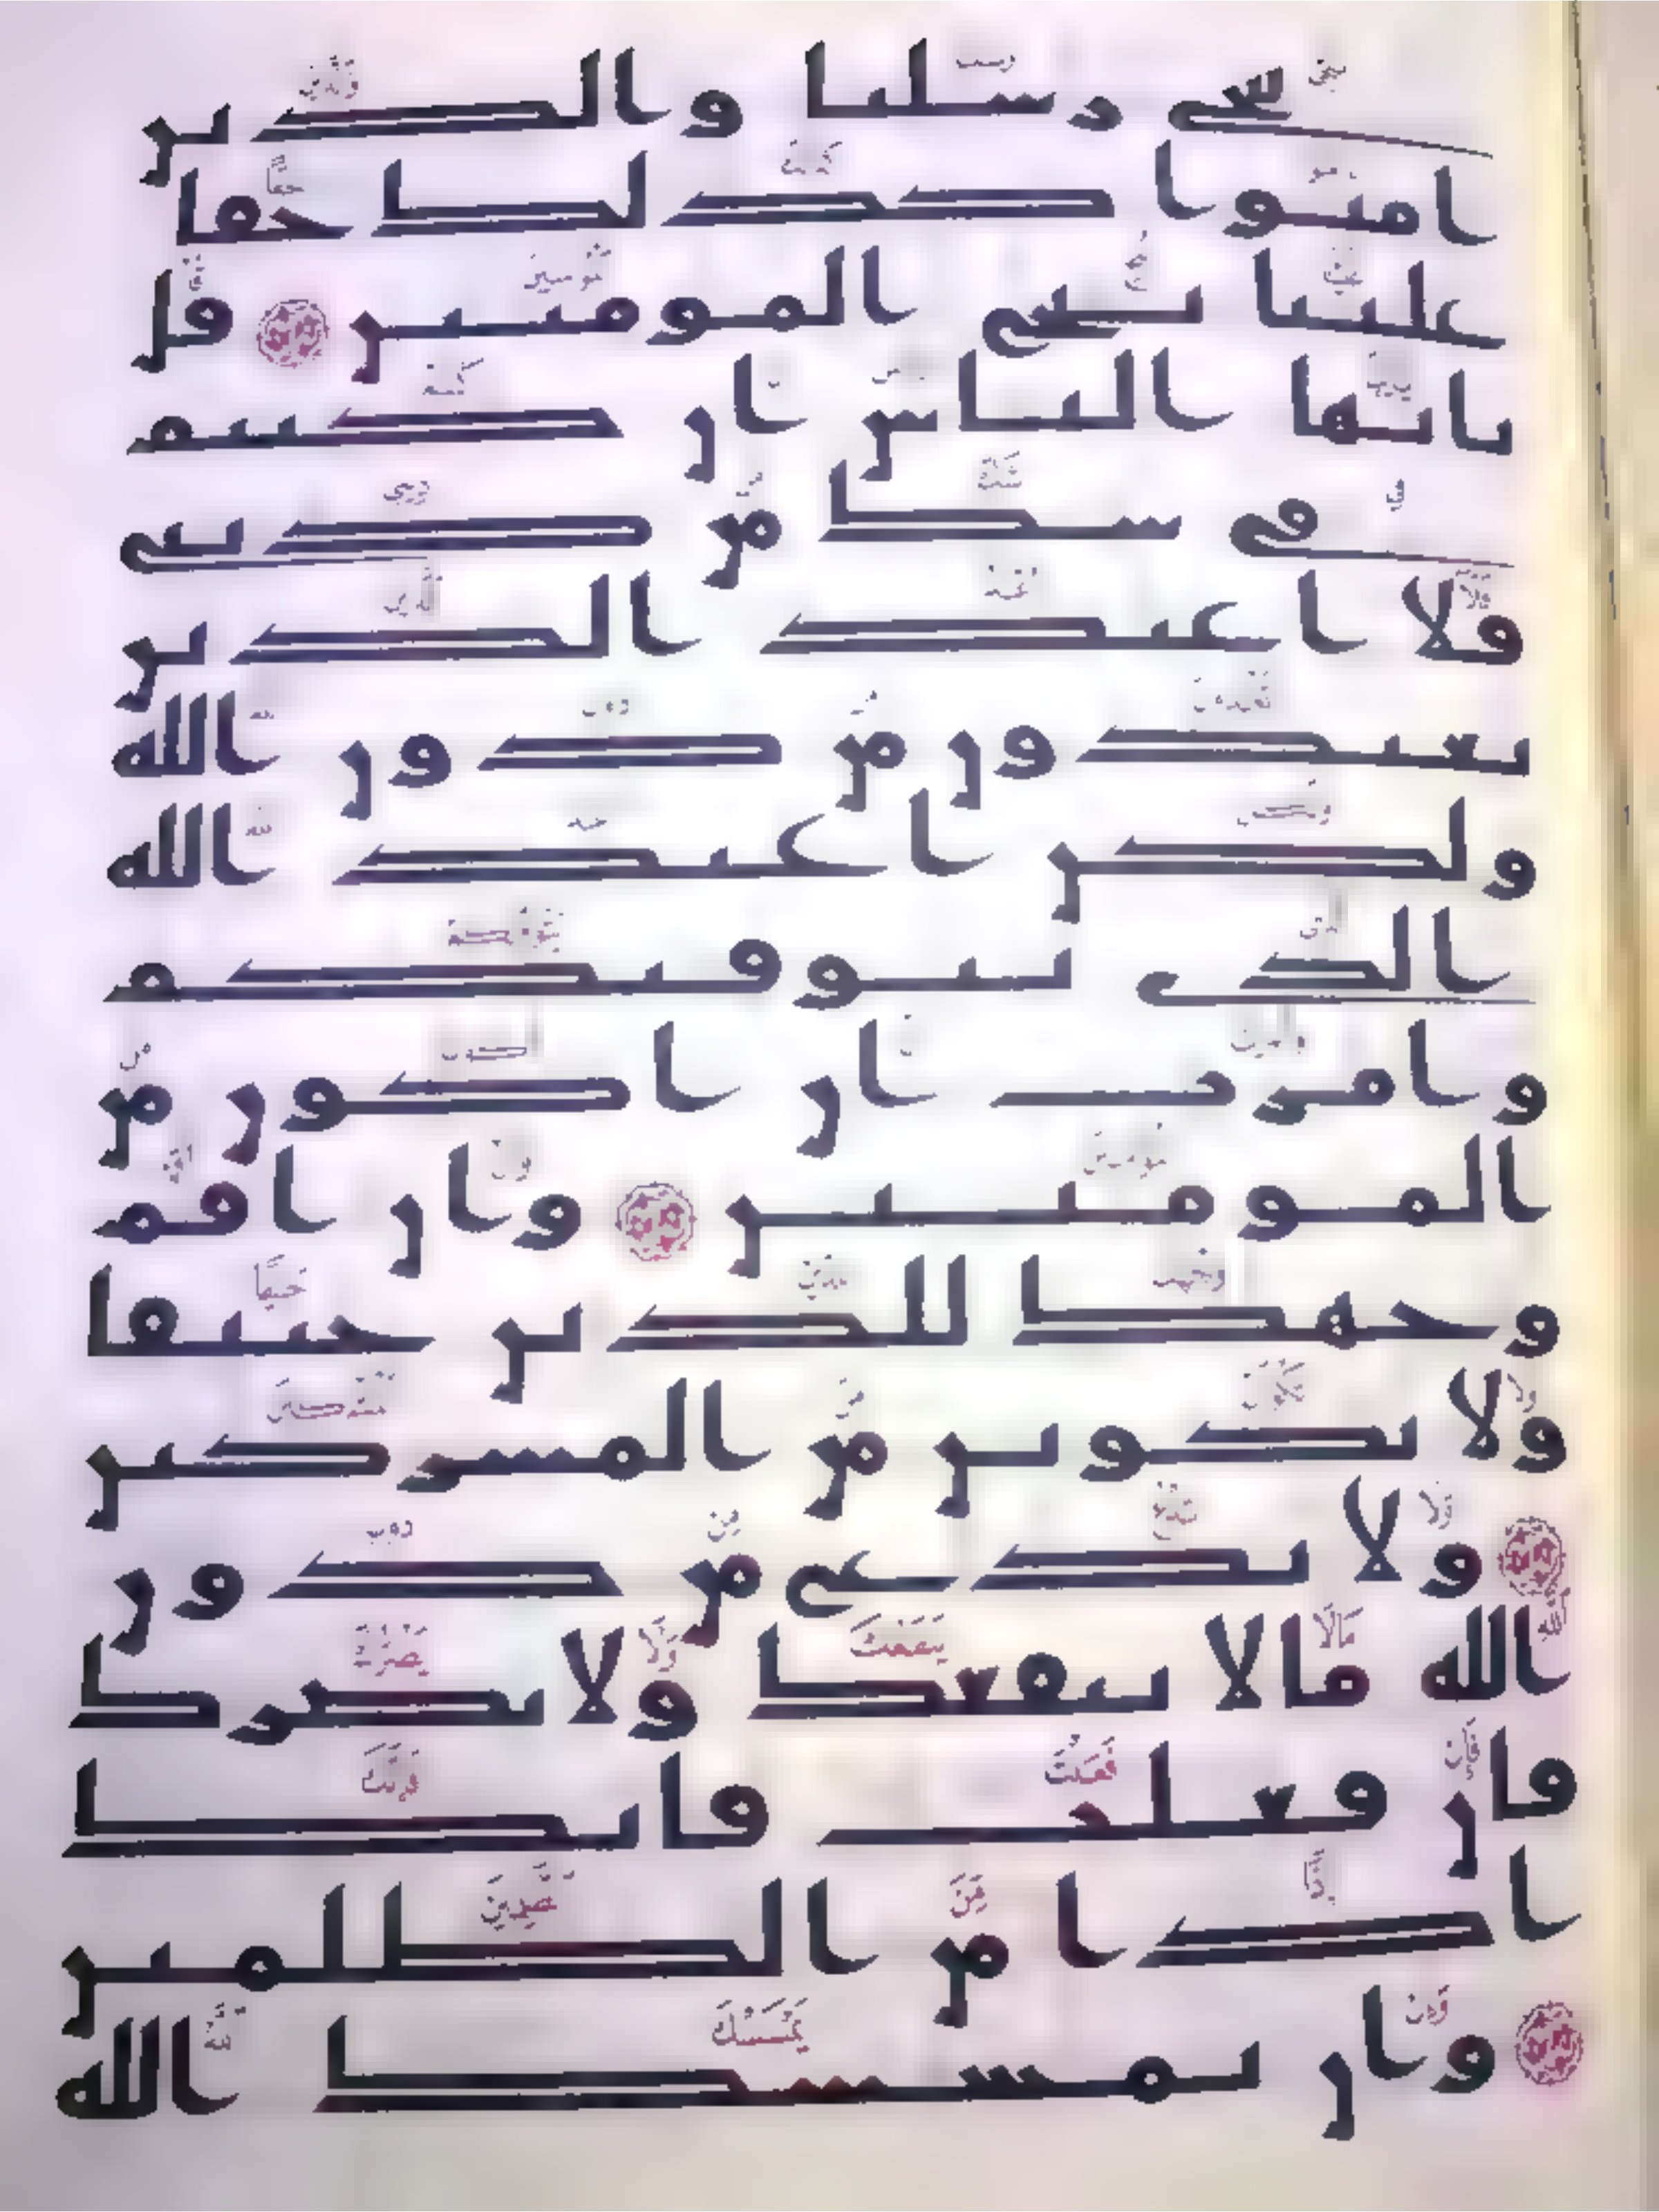 ننجي رسلنا والذين
امنوا كذلك حقا
علينا ننج المومنين قل
يايها الناس ان كنتم
في شك من ديني
فلا اعبد الذين
تعبدون من دون الله
ولكن اعبد الله
الذي يتوفيكم
وامرت ان اكون من
المومنين وان اقم
وجهك للدين حنيفا
ولا تكونن من المشركين
ولا تدع من دون
الله ما لا ينفعك ولا يضرك
فان فعلت فانك
اذا من الظلمين
وان يمسسك الله